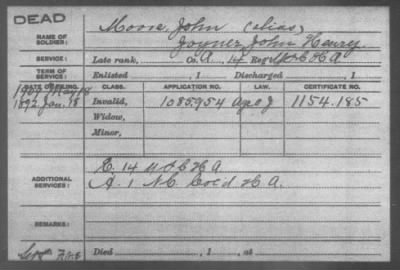 DEAD
NAME OF SOLDIER: Moore, John (alias)
Joyner, John Henry
SERVICE: Late rank, Co. A, 14 Reg't U S C H A
TERM OF SERVICE: Enlisted , 1 Discharged , 1
DATE OF FILING. CLASS. APPLICATION NO. LAW. CERTIFICATE NO.
1892 Jan. 18 Invalid, 1085.954 1154.185
Widow,
Minor,
ADDITIONAL SERVICES: E. 14 U S C H A
A. 1 N C Col'd H A.
REMARKS:
Died , 1 , at